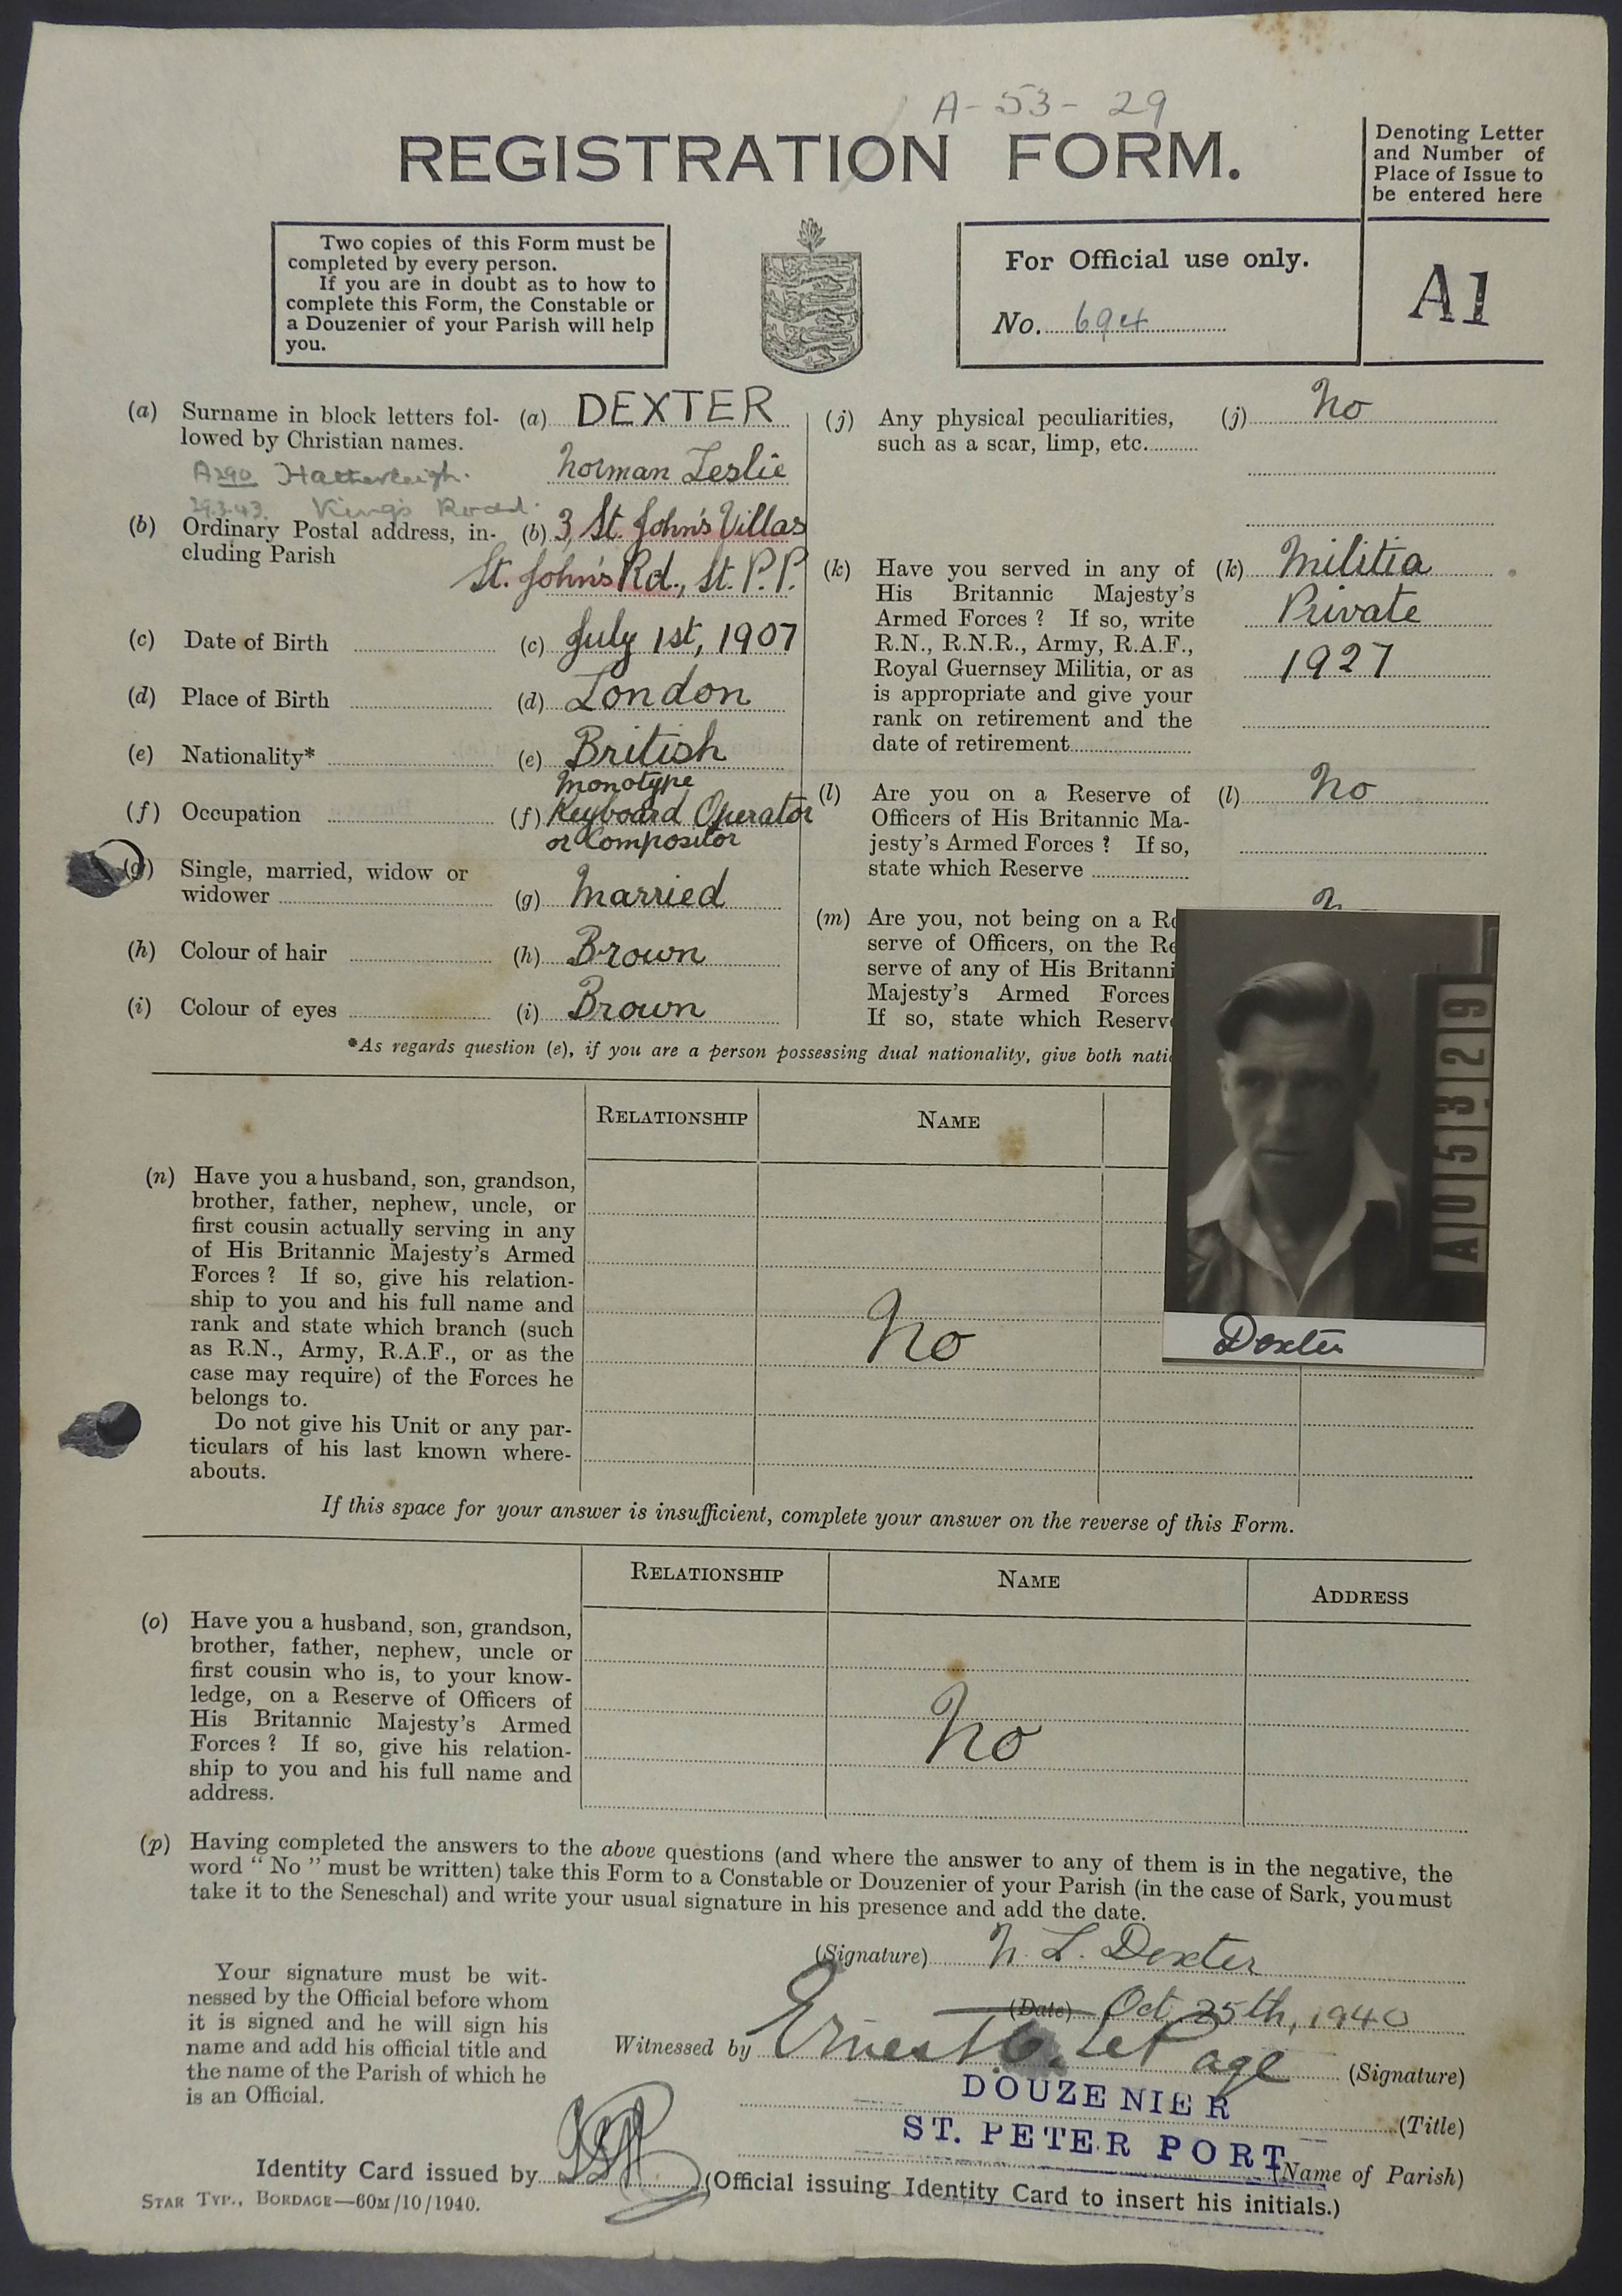 A-53-29
REGISTRATION FORM.
Denoting Letter
and Number of
Place of Issue to
be entered here
Two copies of this Form must be
completed by every person.
If you are in doubt as to how to
complete this Form, the Constable or
a Douzenier of your Parish will help
you.
For Official use only.
No. 694
A1
(a) Surname in block letters fol- (a) DEXTER
lowed by Christian names.
Norman Leslie
A290 Hatherleigh.
29.3.43. King's Road.
(b) Ordinary Postal address, in- (b) 3, St. John's Villas
cluding Parish
St. John's Rd., St. P.P.
(c) Date of Birth (c) July 1st, 1907
(d) Place of Birth (d) London
(e) Nationality* (e) British
Monotype
(f) Occupation (f) Keyboard Operator
or Compositor
(g) Single, married, widow or
widower (g) Married
(h) Colour of hair (h) Brown
(i) Colour of eyes (i) Brown
(j) Any physical peculiarities, (j) No
such as a scar, limp, etc.
(k) Have you served in any of (k) Militia
His Britannic Majesty's
Armed Forces ? If so, write Private
R.N., R.N.R., Army, R.A.F.,
Royal Guernsey Militia, or as 1927
is appropriate and give your
rank on retirement and the
date of retirement
(l) Are you on a Reserve of (l) No
Officers of His Britannic Ma-
jesty's Armed Forces ? If so,
state which Reserve
(m) Are you, not being on a Re
serve of Officers, on the Re
serve of any of His Britanni
Majesty's Armed Forces
If so, state which Reserve
*As regards question (e), if you are a person possessing dual nationality, give both nati
A05329
Dexter
RELATIONSHIP NAME
(n) Have you a husband, son, grandson,
brother, father, nephew, uncle, or
first cousin actually serving in any
of His Britannic Majesty's Armed
Forces ? If so, give his relation-
ship to you and his full name and
rank and state which branch (such
as R.N., Army, R.A.F., or as the
case may require) of the Forces he
belongs to.
Do not give his Unit or any par-
ticulars of his last known where-
abouts.
No
If this space for your answer is insufficient, complete your answer on the reverse of this Form.
RELATIONSHIP NAME ADDRESS
(o) Have you a husband, son, grandson,
brother, father, nephew, uncle or
first cousin who is, to your know-
ledge, on a Reserve of Officers of
His Britannic Majesty's Armed
Forces ? If so, give his relation-
ship to you and his full name and
address.
No
(p) Having completed the answers to the above questions (and where the answer to any of them is in the negative, the
word "No" must be written) take this Form to a Constable or Douzenier of your Parish (in the case of Sark, you must
take it to the Seneschal) and write your usual signature in his presence and add the date.
(Signature) N. L. Dexter
(Date) Oct. 25th, 1940
Your signature must be wit-
nessed by the Official before whom
it is signed and he will sign his
name and add his official title and
the name of the Parish of which he
is an Official.
Witnessed by Ernest C. Le Page (Signature)
DOUZENIER (Title)
ST. PETER PORT (Name of Parish)
Identity Card issued by (Official issuing Identity Card to insert his initials.)
STAR TYP., BORDAGE—60M/10/1940.